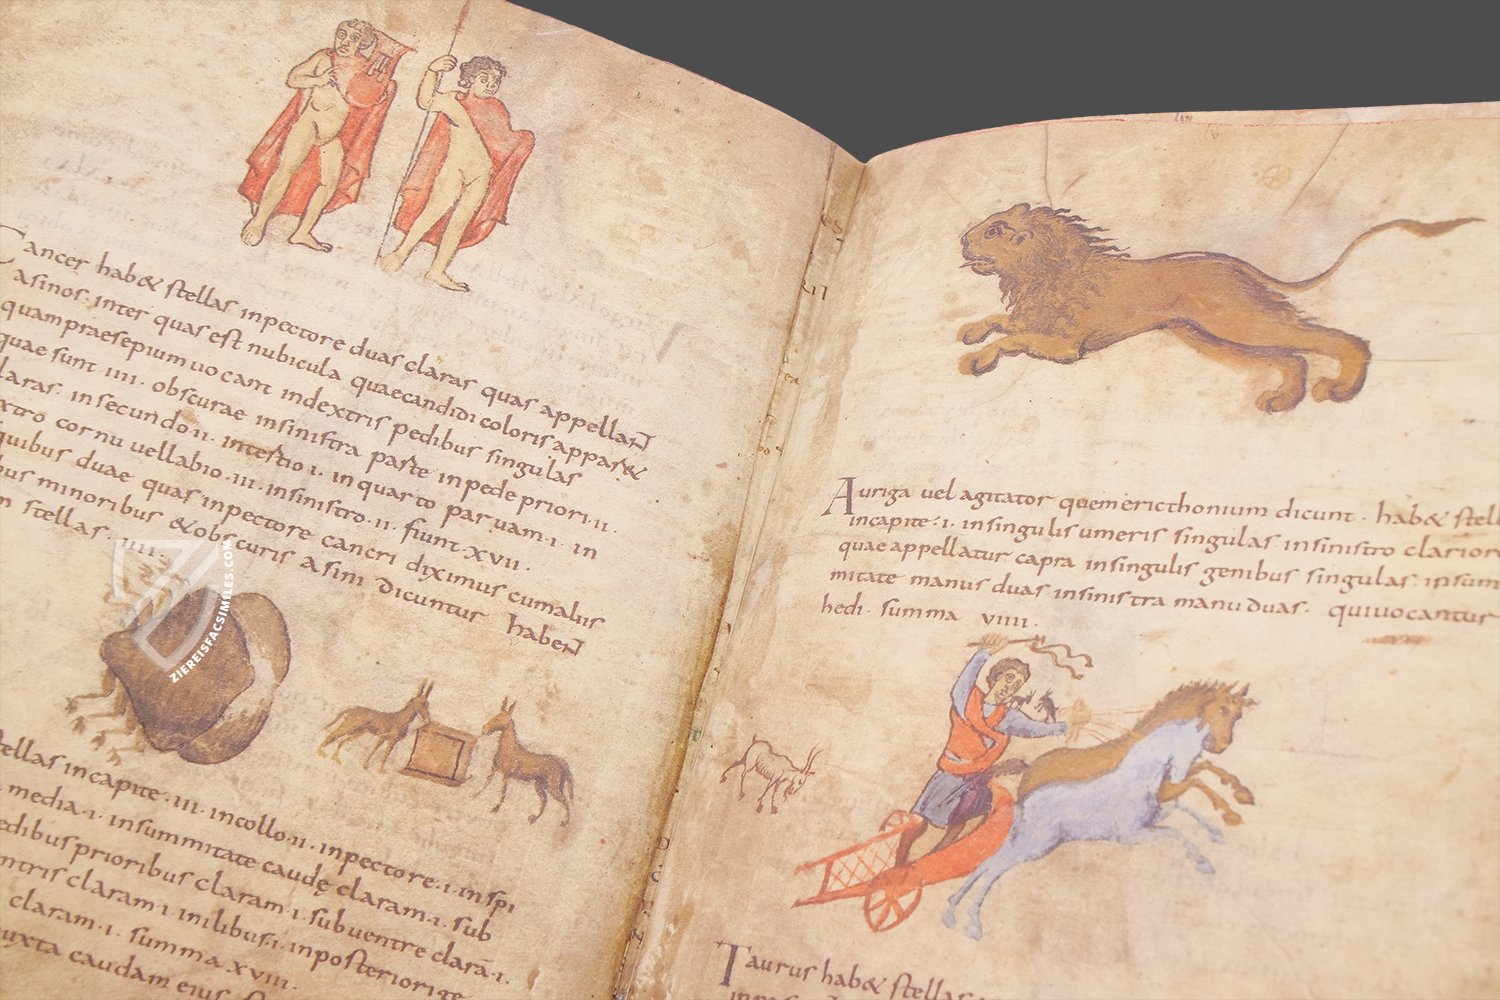 Cancer hab& stellas inpectore duas claras quas appellant
asinos. inter quas est nubicula quaecandidi coloris appar&
quampraesepium uocant indextris pedibus singulas
quae sunt .IIII. obscurae insinistra parte inpede priori .II.
claras. insecundo .II. intertio .I. inquarto paruam .I. in
cornu uellabio .III. insinistro .II. fiunt .XVII.
duae quas inpectore cancri diximus cumaliis
minoribus &obscuris asini dicuntur habent
stellas .IIII.
ZIEREISFACSIMILES.COM
stellas incapite .III. incollo .II. inpectore .I. inspi
media .I. insummitate caudę claram .I. sub
pedibus prioribus claram .I. subuentre clarā .I.
claram .I. inilibus .I. inposteriorige
claram .I. summa XVIII.
iuxta caudam eius
Auriga uel agitator quemericthonium dicunt. hab& stell
incapite .I. insingulis umeris singulas insinistro clarior
quae appellatur capra insingulis genibus singulas. ipsum
mitate manus duas insinistra manu duas. quiuocantur
hedi. summa VIIII.
Taurus hab& stellas